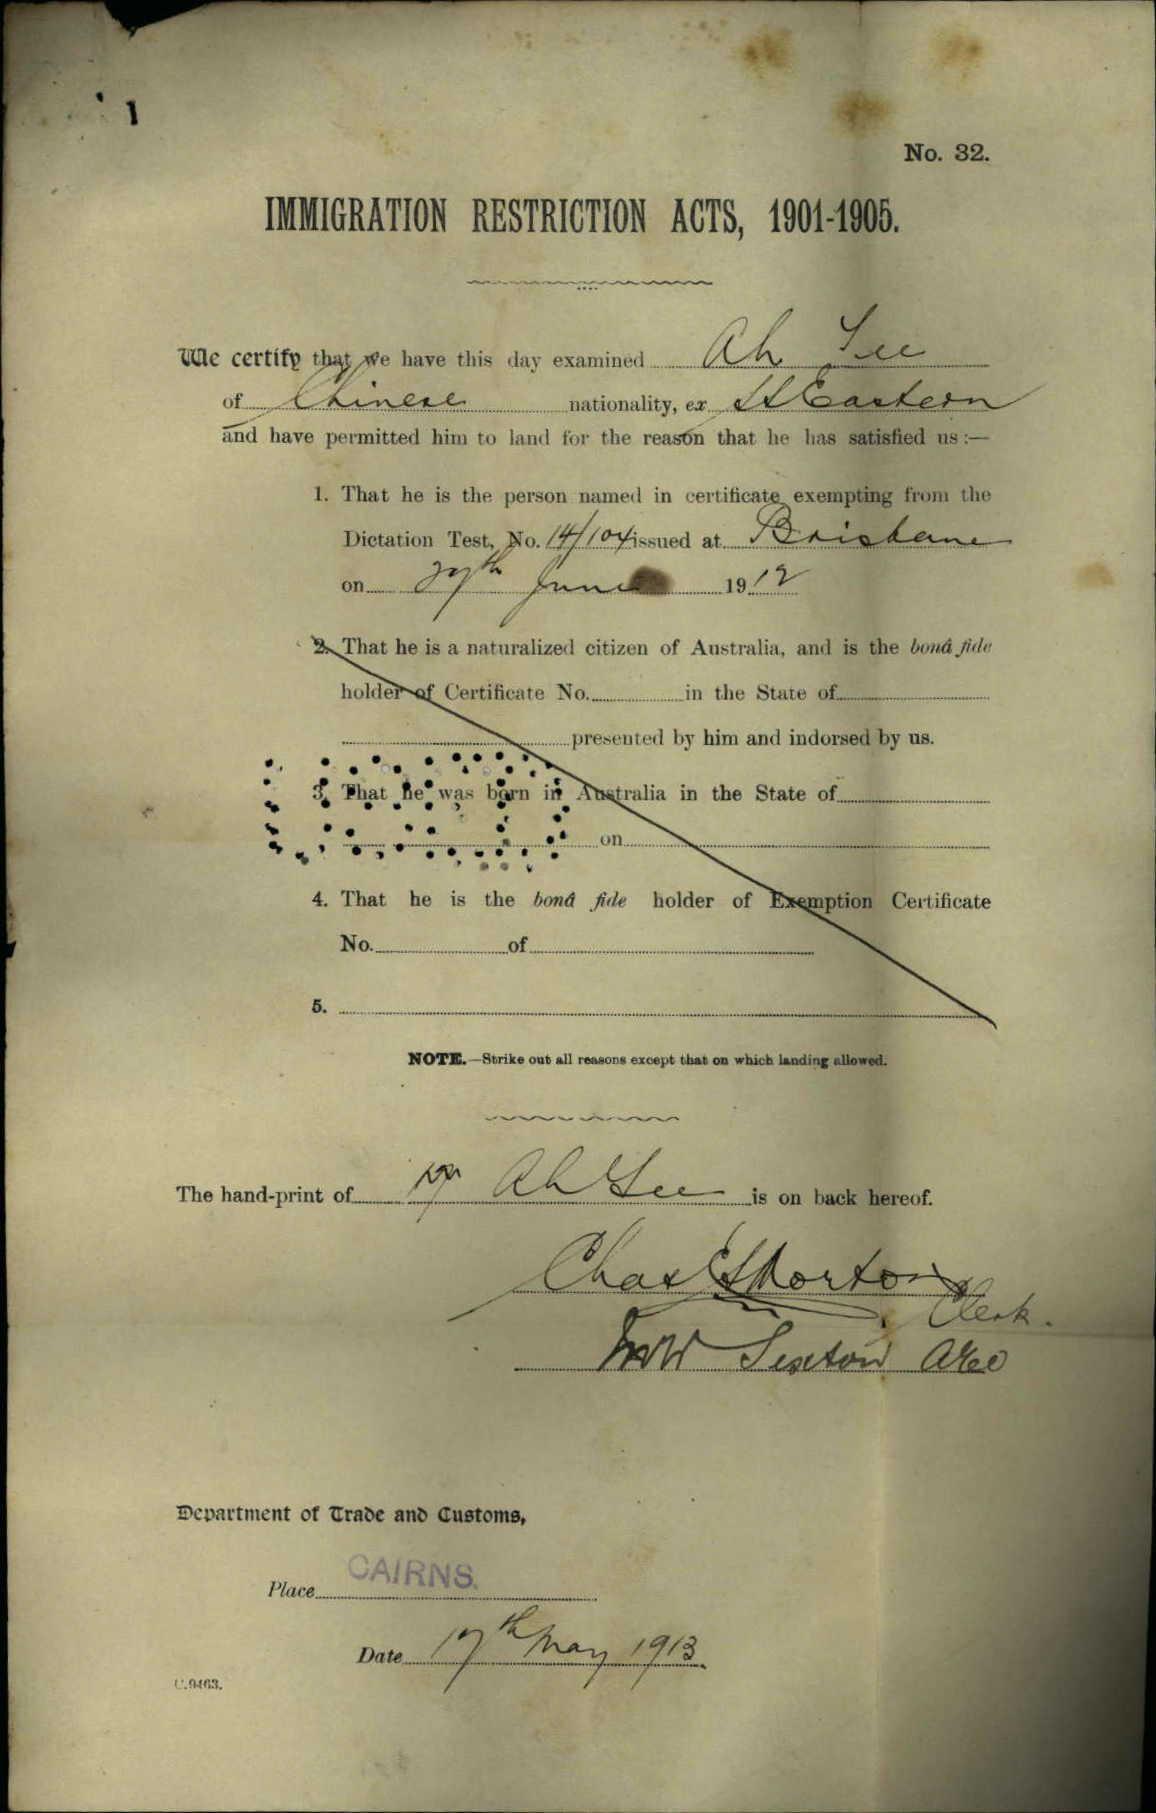 No. 32.
IMMIGRATION RESTRICTION ACTS, 1901-1905.
We certify that we have this day examined Ah See
of Chinese nationality, ex SS Eastern
and have permitted him to land for the reason that he has satisfied us :—
1. That he is the person named in certificate exempting from the
Dictation Test, No. 14/104 issued at Brisbane
on 27th June 1912
2. That he is a naturalized citizen of Australia, and is the bonâ fide
holder of Certificate No. in the State of
presented by him and indorsed by us.
3. That he was born in Australia in the State of
on
4. That he is the bonâ fide holder of Exemption Certificate
No. of
5.
NOTE.—Strike out all reasons except that on which landing allowed.
The hand-print of Ah See is on back hereof.
Chas E S Morton
Clerk.
Sexton
Department of Trade and Customs,
Place CAIRNS.
Date 17th May 1913.
C.9463.